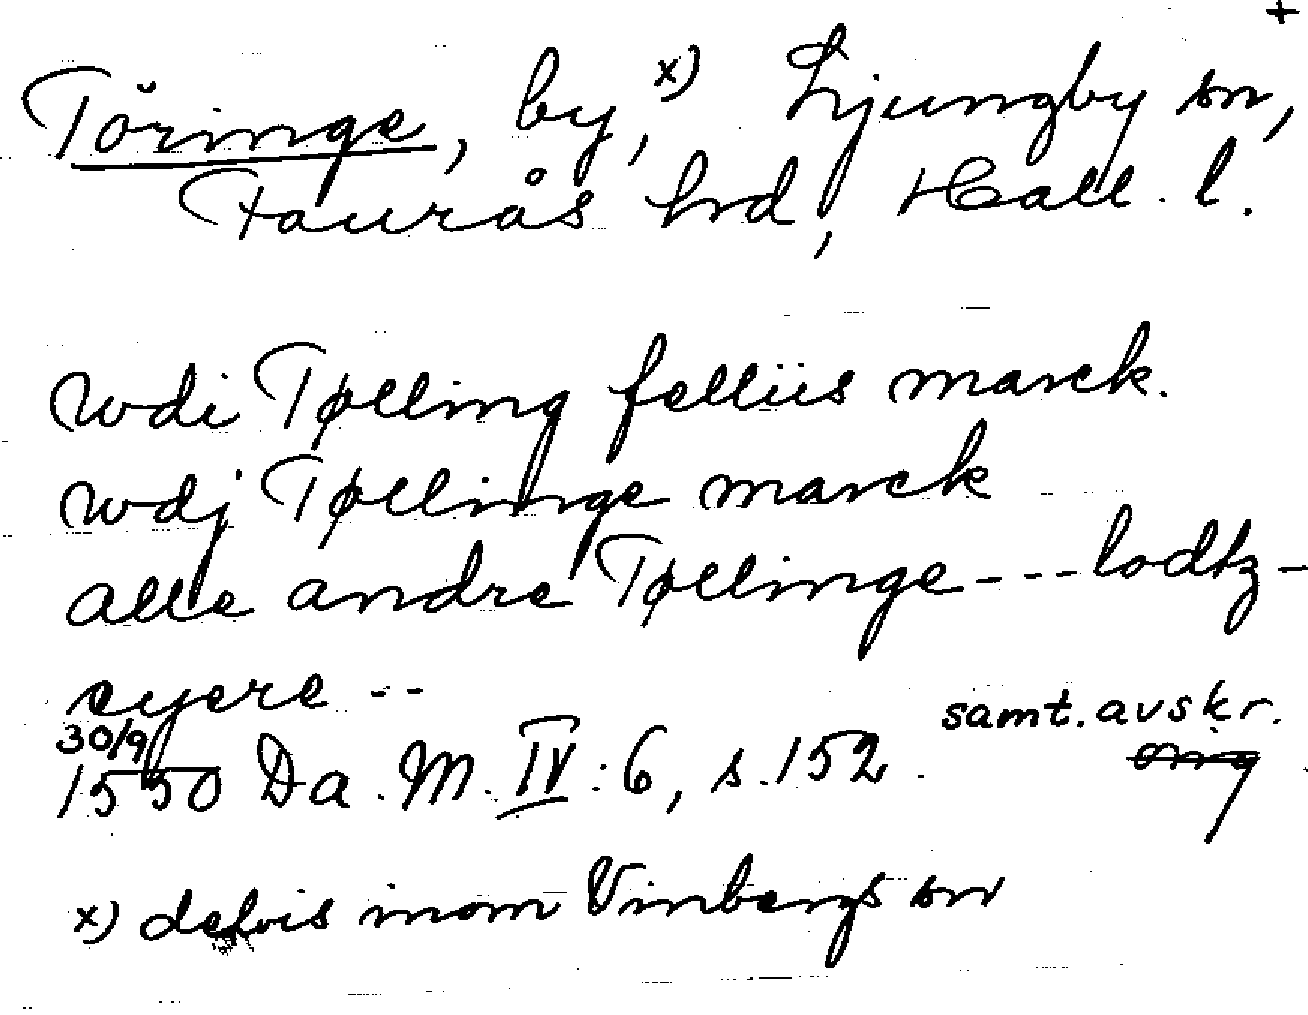 +
Töringe, by, x) Ljungby sn,
Faurås hrd, Hall. l.
wdi Tølling felliis marck.
wdj Tøllinge marck
alle andre Tøllinge --- lodtz-
eyere --
30/9 samt. avskr.
1550 Da. M. IV:6, s. 152.
x) delvis inom Vinbergs sn